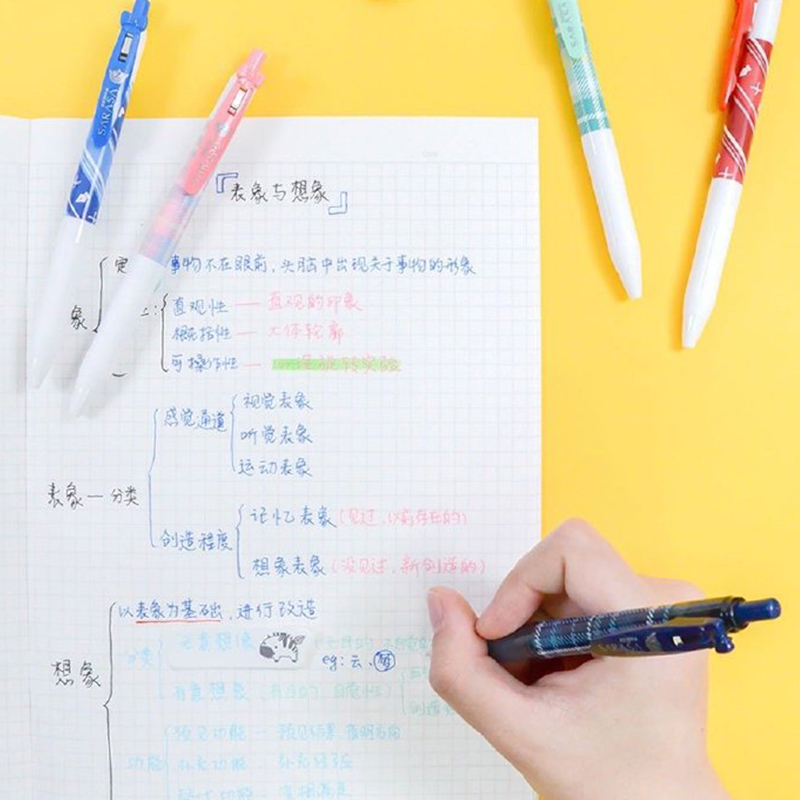 SARASA
『表象与想象』
事物不在眼前,头脑中出现关于事物的形象
象
直观性 — 直观的印象
概括性 — 大体轮廓
可操作性 — 心理旋转实验
感觉通道
视觉表象
听觉表象
运动表象
表象—分类
创造程度
记忆表象(见过,以前存在的)
想象表象(没见过,新创造的)
以表象为基础,进行改造
想象
分类
无意想象
eg:云、
有意想象
功能
预见功能 — 预见结果,指明方向
补充功能 — 补充经验